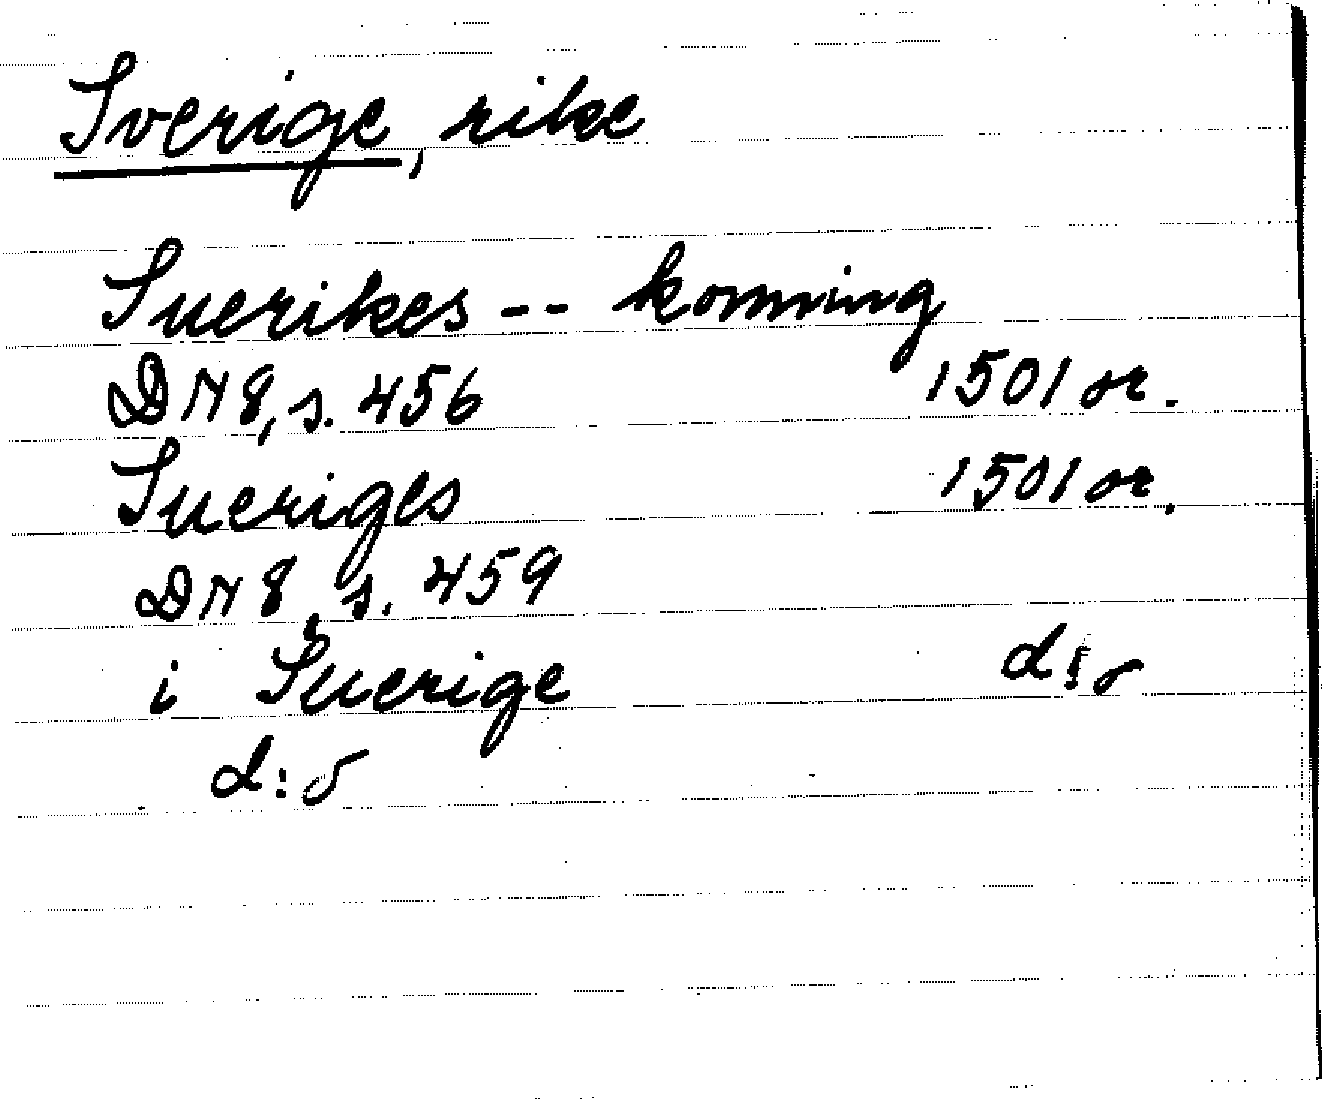 Sverige, rike
Suerikes -- konning
DN 8, s. 456 1501 or.
Sueriges 1501 or.
DN 8, s. 459
i Suerige d:o
d:o